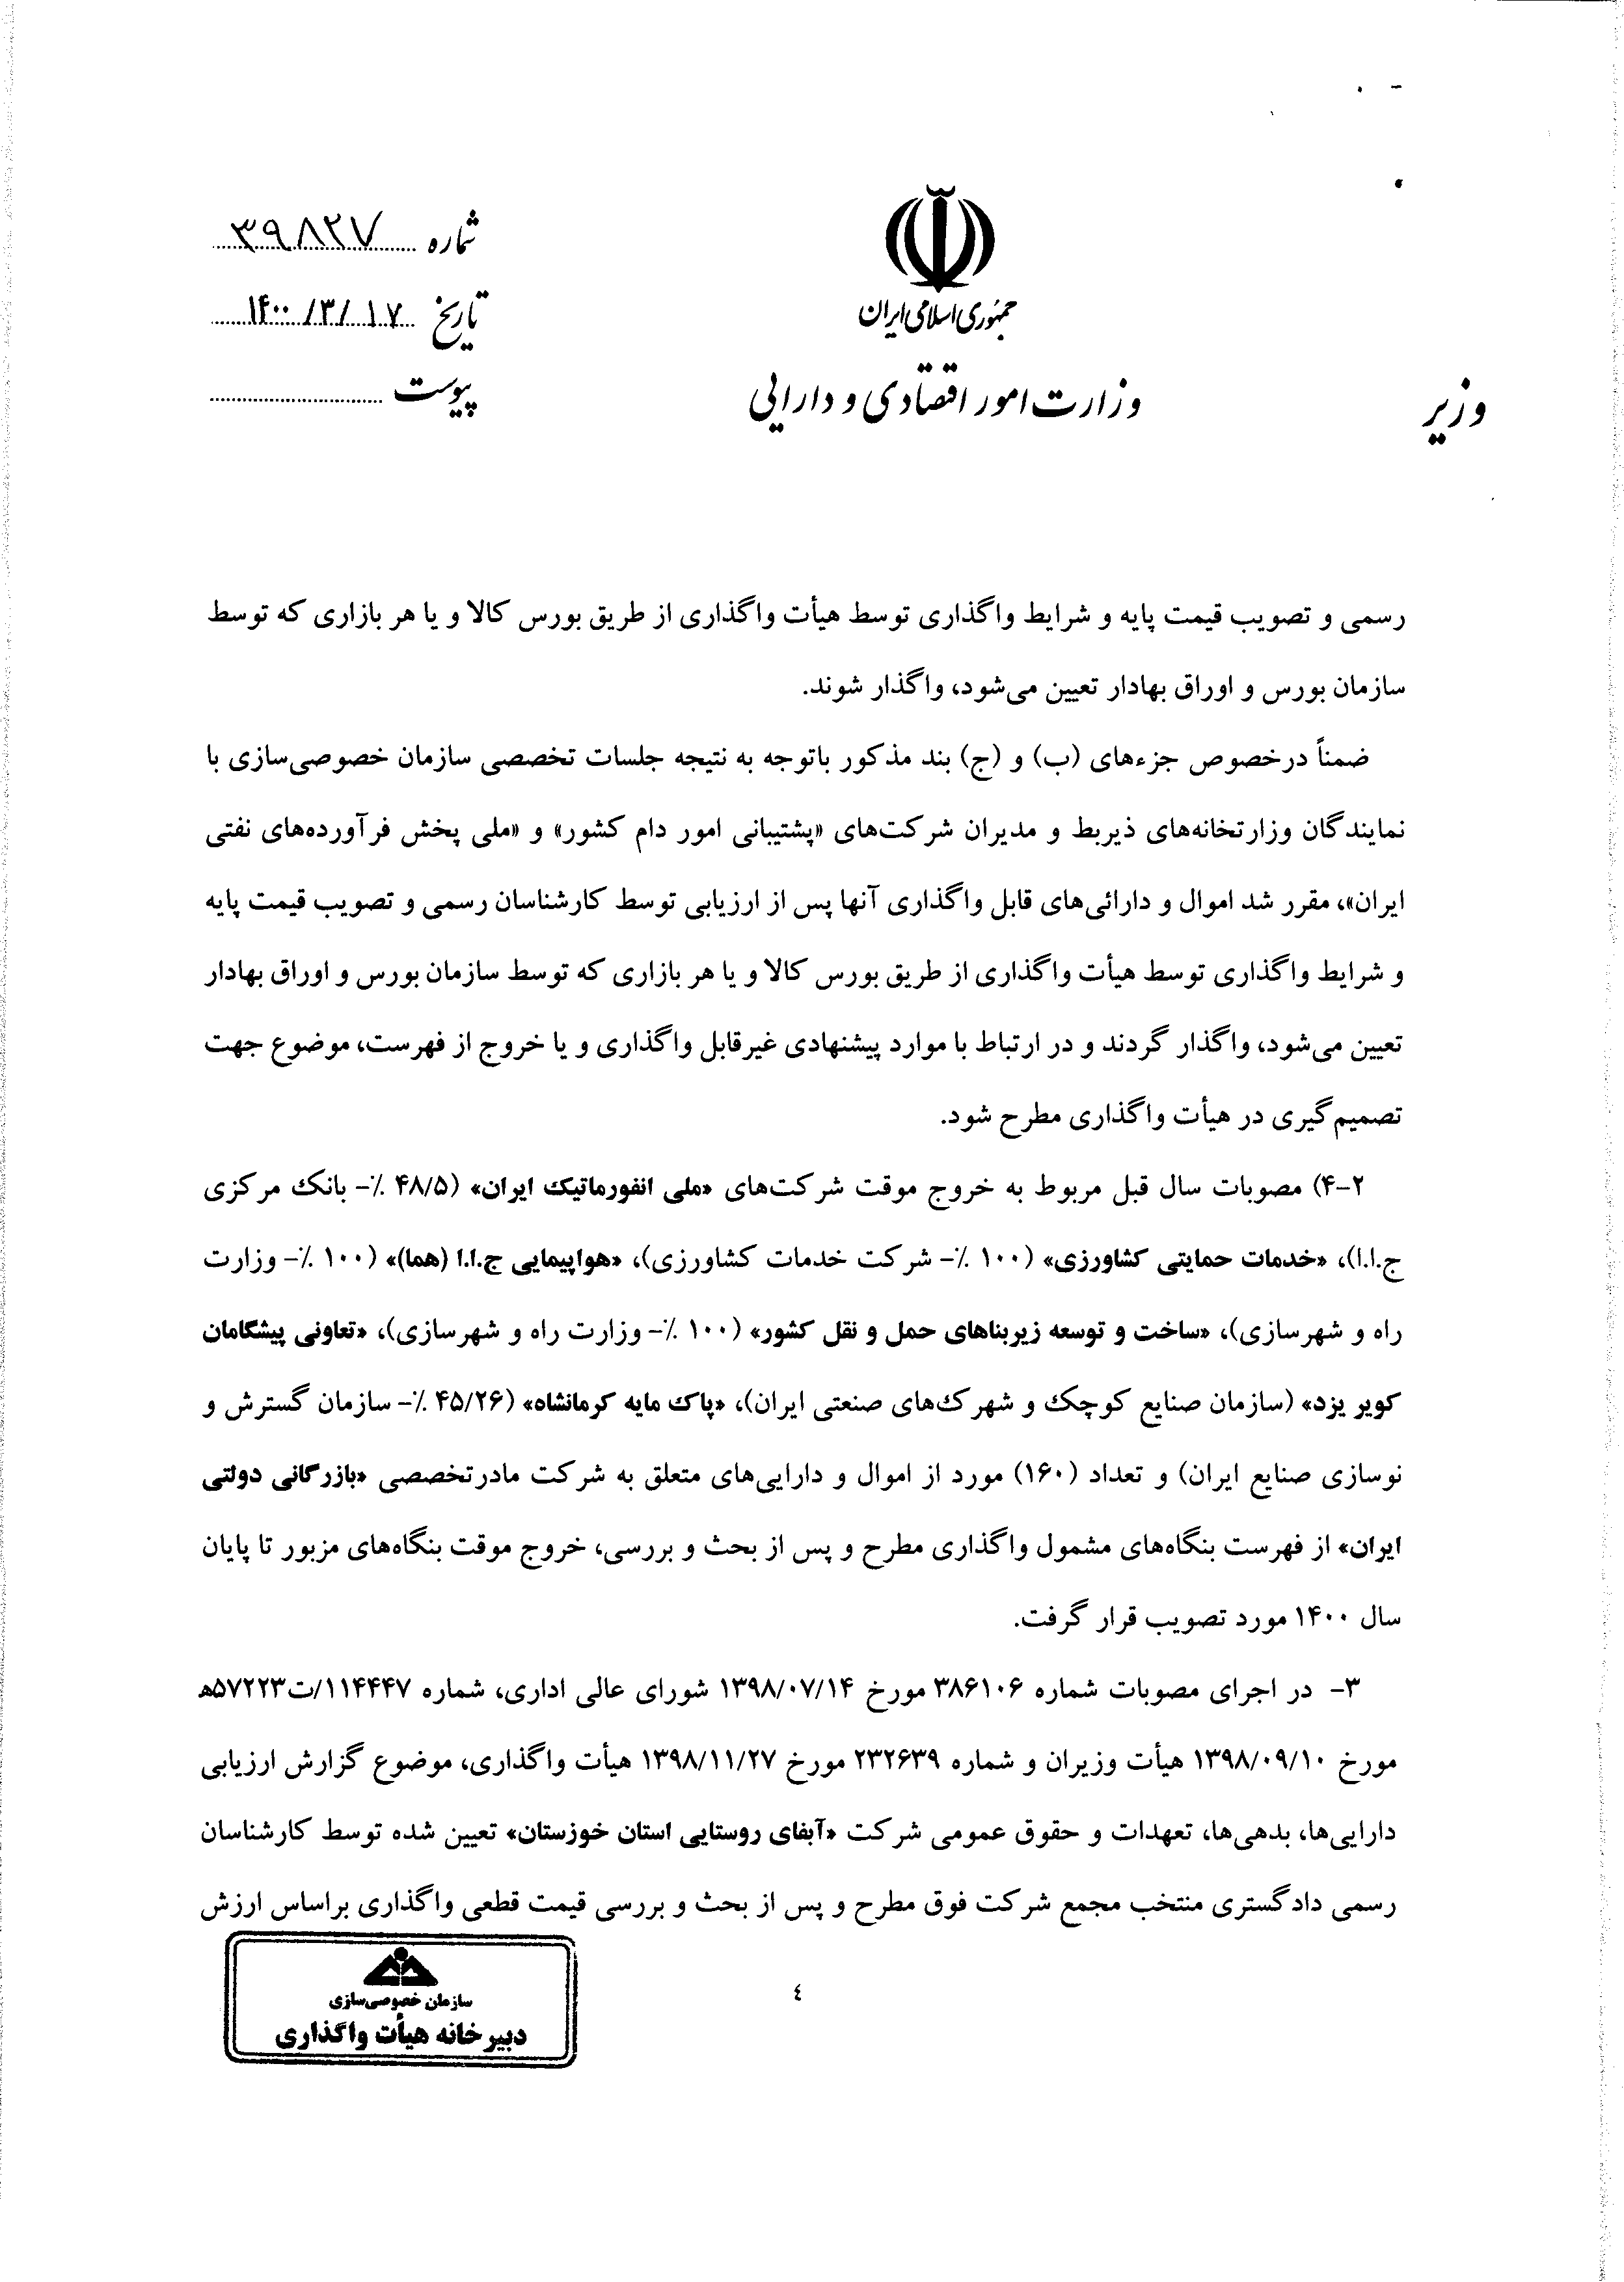 جمهوری اسلامی ایران
وزارت امور اقتصادی و دارایی
وزیر
شماره ۳۹۸۲۷
تاریخ ۱۴۰۰/۳/۱۷
پیوست
رسمی و تصویب قیمت پایه و شرایط واگذاری توسط هیأت واگذاری از طریق بورس کالا و یا هر بازاری که توسط
سازمان بورس و اوراق بهادار تعیین می‌شود، واگذار شوند.
ضمناً درخصوص جزءهای (ب) و (ج) بند مذکور باتوجه به نتیجه جلسات تخصصی سازمان خصوصی‌سازی با
نمایندگان وزارتخانه‌های ذیربط و مدیران شرکت‌های «پشتیبانی امور دام کشور» و «ملی پخش فرآورده‌های نفتی
ایران»، مقرر شد اموال و دارائی‌های قابل واگذاری آنها پس از ارزیابی توسط کارشناسان رسمی و تصویب قیمت پایه
و شرایط واگذاری توسط هیأت واگذاری از طریق بورس کالا و یا هر بازاری که توسط سازمان بورس و اوراق بهادار
تعیین می‌شود، واگذار گردند و در ارتباط با موارد پیشنهادی غیرقابل واگذاری و یا خروج از فهرست، موضوع جهت
تصمیم‌گیری در هیأت واگذاری مطرح شود.
۴-۲) مصوبات سال قبل مربوط به خروج موقت شرکت‌های «ملی انفورماتیک ایران» (۴۸/۵ ٪- بانک مرکزی
ج.ا.ا)، «خدمات حمایتی کشاورزی» (۱۰۰ ٪- شرکت خدمات کشاورزی)، «هواپیمایی ج.ا.ا (هما)» (۱۰۰ ٪- وزارت
راه و شهرسازی)، «ساخت و توسعه زیربناهای حمل و نقل کشور» (۱۰۰ ٪- وزارت راه و شهرسازی)، «تعاونی پیشگامان
کویر یزد» (سازمان صنایع کوچک و شهرک‌های صنعتی ایران)، «پاک مایه کرمانشاه» (۴۵/۲۶ ٪- سازمان گسترش و
نوسازی صنایع ایران) و تعداد (۱۶۰) مورد از اموال و دارایی‌های متعلق به شرکت مادرتخصصی «بازرگانی دولتی
ایران» از فهرست بنگاه‌های مشمول واگذاری مطرح و پس از بحث و بررسی، خروج موقت بنگاه‌های مزبور تا پایان
سال ۱۴۰۰ مورد تصویب قرار گرفت.
۳- در اجرای مصوبات شماره ۳۸۶۱۰۶ مورخ ۱۳۹۸/۰۷/۱۴ شورای عالی اداری، شماره ۱۱۴۴۴۷/ت۵۷۲۲۳ه‍
مورخ ۱۳۹۸/۰۹/۱۰ هیأت وزیران و شماره ۲۳۲۶۳۹ مورخ ۱۳۹۸/۱۱/۲۷ هیأت واگذاری، موضوع گزارش ارزیابی
دارایی‌ها، بدهی‌ها، تعهدات و حقوق عمومی شرکت «آبفای روستایی استان خوزستان» تعیین شده توسط کارشناسان
رسمی دادگستری منتخب مجمع شرکت فوق مطرح و پس از بحث و بررسی قیمت قطعی واگذاری براساس ارزش
٤
سازمان خصوصی‌سازی
دبیرخانه هیأت واگذاری